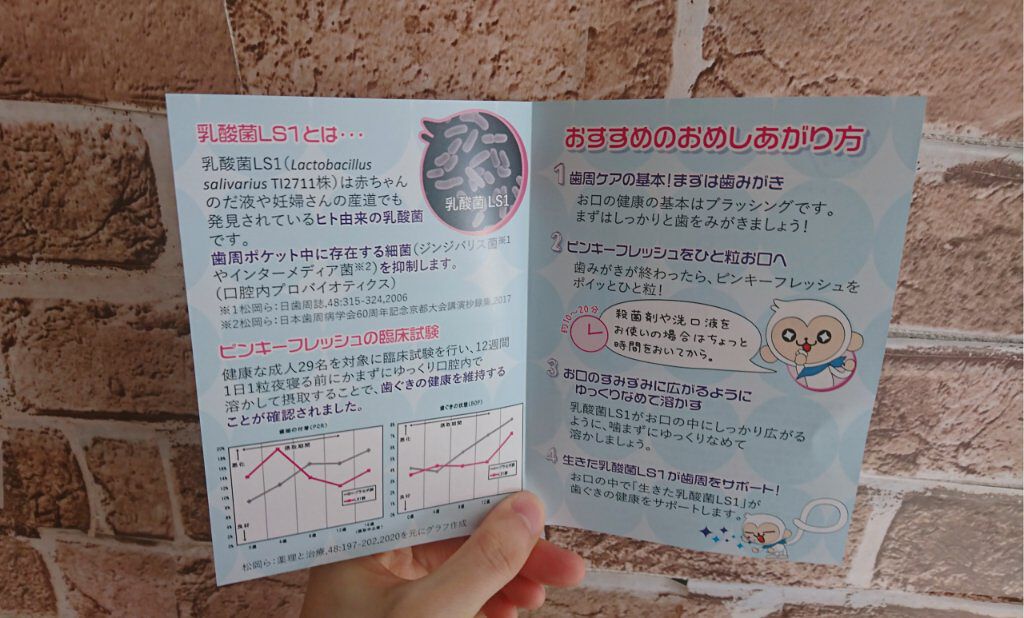 乳酸菌LS1とは・・・
乳酸菌LS1(Lactobacillus
salivarius TI2711株)は赤ちゃん
のだ液や妊婦さんの産道でも
発見されているヒト由来の乳酸菌
です。
乳酸菌LS1
歯周ポケット中に存在する細菌(ジンジバリス菌※1
やインターメディア菌※2)を抑制します。
(口腔内プロバイオティクス)
※1松岡ら:日歯周誌,48:315-324,2006
※2松岡ら:日本歯周病学会60周年記念京都大会講演抄録集,2017
ピンキーフレッシュの臨床試験
健康な成人29名を対象に臨床試験を行い、12週間
1日1粒夜寝る前にかまずにゆっくり口腔内で
溶かして摂取することで、歯ぐきの健康を維持する
ことが確認されました。
歯垢の付着(PCR)
摂取期間
悪化
良好
歯ぐきの状態(BOP)
摂取期間
悪化
良好
松岡ら:薬理と治療,48:197-202,2020を元にグラフ作成
おすすめのおめしあがり方
1 歯周ケアの基本!まずは歯みがき
お口の健康の基本はブラッシングです。
まずはしっかりと歯をみがきましょう!
2 ピンキーフレッシュをひと粒お口へ
歯みがきが終わったら、ピンキーフレッシュを
ポイッとひと粒!
約10~20分
殺菌剤や洗口液を
お使いの場合はちょっと
時間をおいてから。
3 お口のすみずみに広がるように
ゆっくりなめて溶かす
乳酸菌LS1がお口の中にしっかり広がる
ように、噛まずにゆっくりなめて
溶かしましょう。
4 生きた乳酸菌LS1が歯周をサポート!
お口の中で「生きた乳酸菌LS1」が
歯ぐきの健康をサポートします。